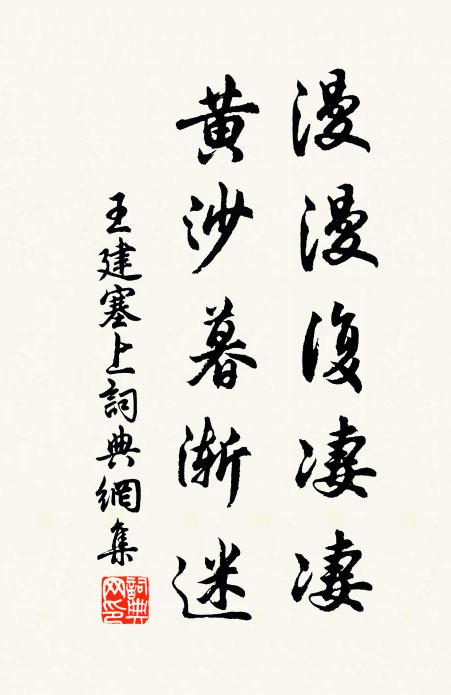 漫漫復淒淒
黃沙暮漸迷
王建塞上詞典網集
詞典網印